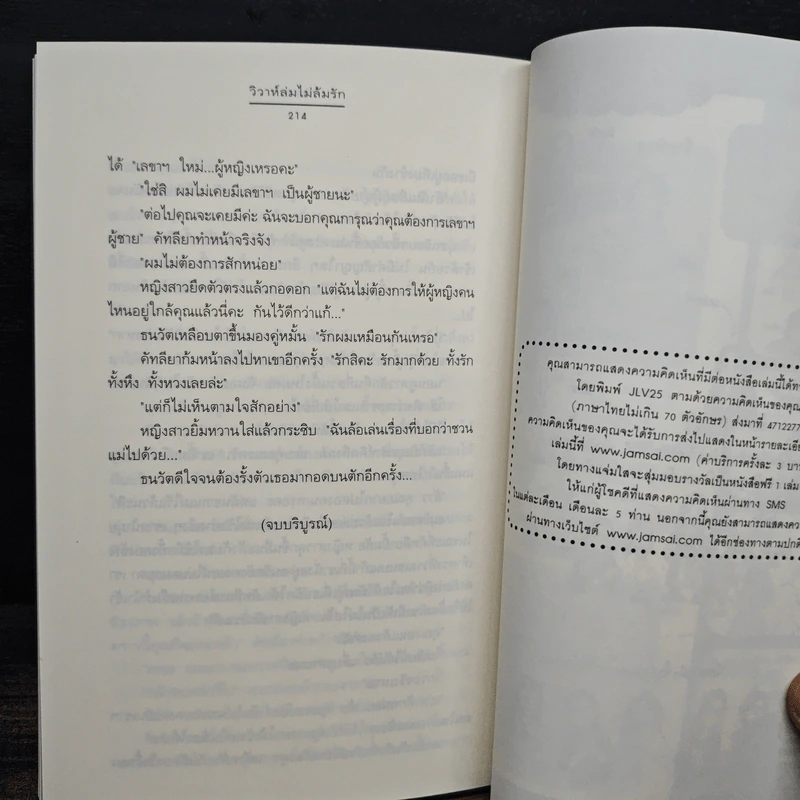 วิวาห์ล่มไม่ล้มรัก
214
ได้ "เลขาฯ ใหม่...ผู้หญิงเหรอคะ"
"ใช่สิ ผมไม่เคยมีเลขาฯ เป็นผู้ชายนะ"
"ต่อไปคุณจะเคยมีค่ะ ฉันจะบอกคุณการุณว่าคุณต้องการเลขาฯ
ผู้ชาย" คัทลียาทำหน้าจริงจัง
"ผมไม่ต้องการสักหน่อย"
หญิงสาวยืดตัวตรงแล้วกอดอก "แต่ฉันไม่ต้องการให้ผู้หญิงคน
ไหนอยู่ใกล้คุณแล้วนี่คะ กันไว้ดีกว่าแก้..."
ธนวัตเหลือบตาขึ้นมองคู่หมั้น "รักผมเหมือนกันเหรอ"
คัทลียาก้มหน้าลงไปหาเขาอีกครั้ง "รักสิคะ รักมากด้วย ทั้งรัก
ทั้งหึง ทั้งหวงเลยล่ะ"
"แต่ก็ไม่เห็นตามใจสักอย่าง"
หญิงสาวยิ้มหวานใส่แล้วกระซิบ "ฉันล้อเล่นเรื่องที่บอกว่าชวน
แม่ไปด้วย..."
ธนวัตดีใจจนต้องรั้งตัวเธอมากอดบนตักอีกครั้ง...
(จบบริบูรณ์)
คุณสามารถแสดงความคิดเห็นที่มีต่อหนังสือเล่มนี้ได้
โดยพิมพ์ JLV25 ตามด้วยความคิดเห็นของคุณ
(ภาษาไทยไม่เกิน 70 ตัวอักษร) ส่งมาที่ 4712277
ความคิดเห็นของคุณจะได้รับการส่งไปแสดงในหน้า
เล่มนี้ที่ www.jamsai.com (ค่าบริการครั้งละ 3
โดยทางแจ่มใสจะสุ่มมอบรางวัลเป็นหนังสือฟรี 1 เล่ม
ให้แก่ผู้โชคดีที่แสดงความคิดเห็นผ่านทาง SMS
ในแต่ละเดือน เดือนละ 5 ท่าน นอกจากนี้คุณยังสามารถ
ผ่านทางเว็บไซต์ www.jamsai.com ได้อีกช่องทางตามปกติ